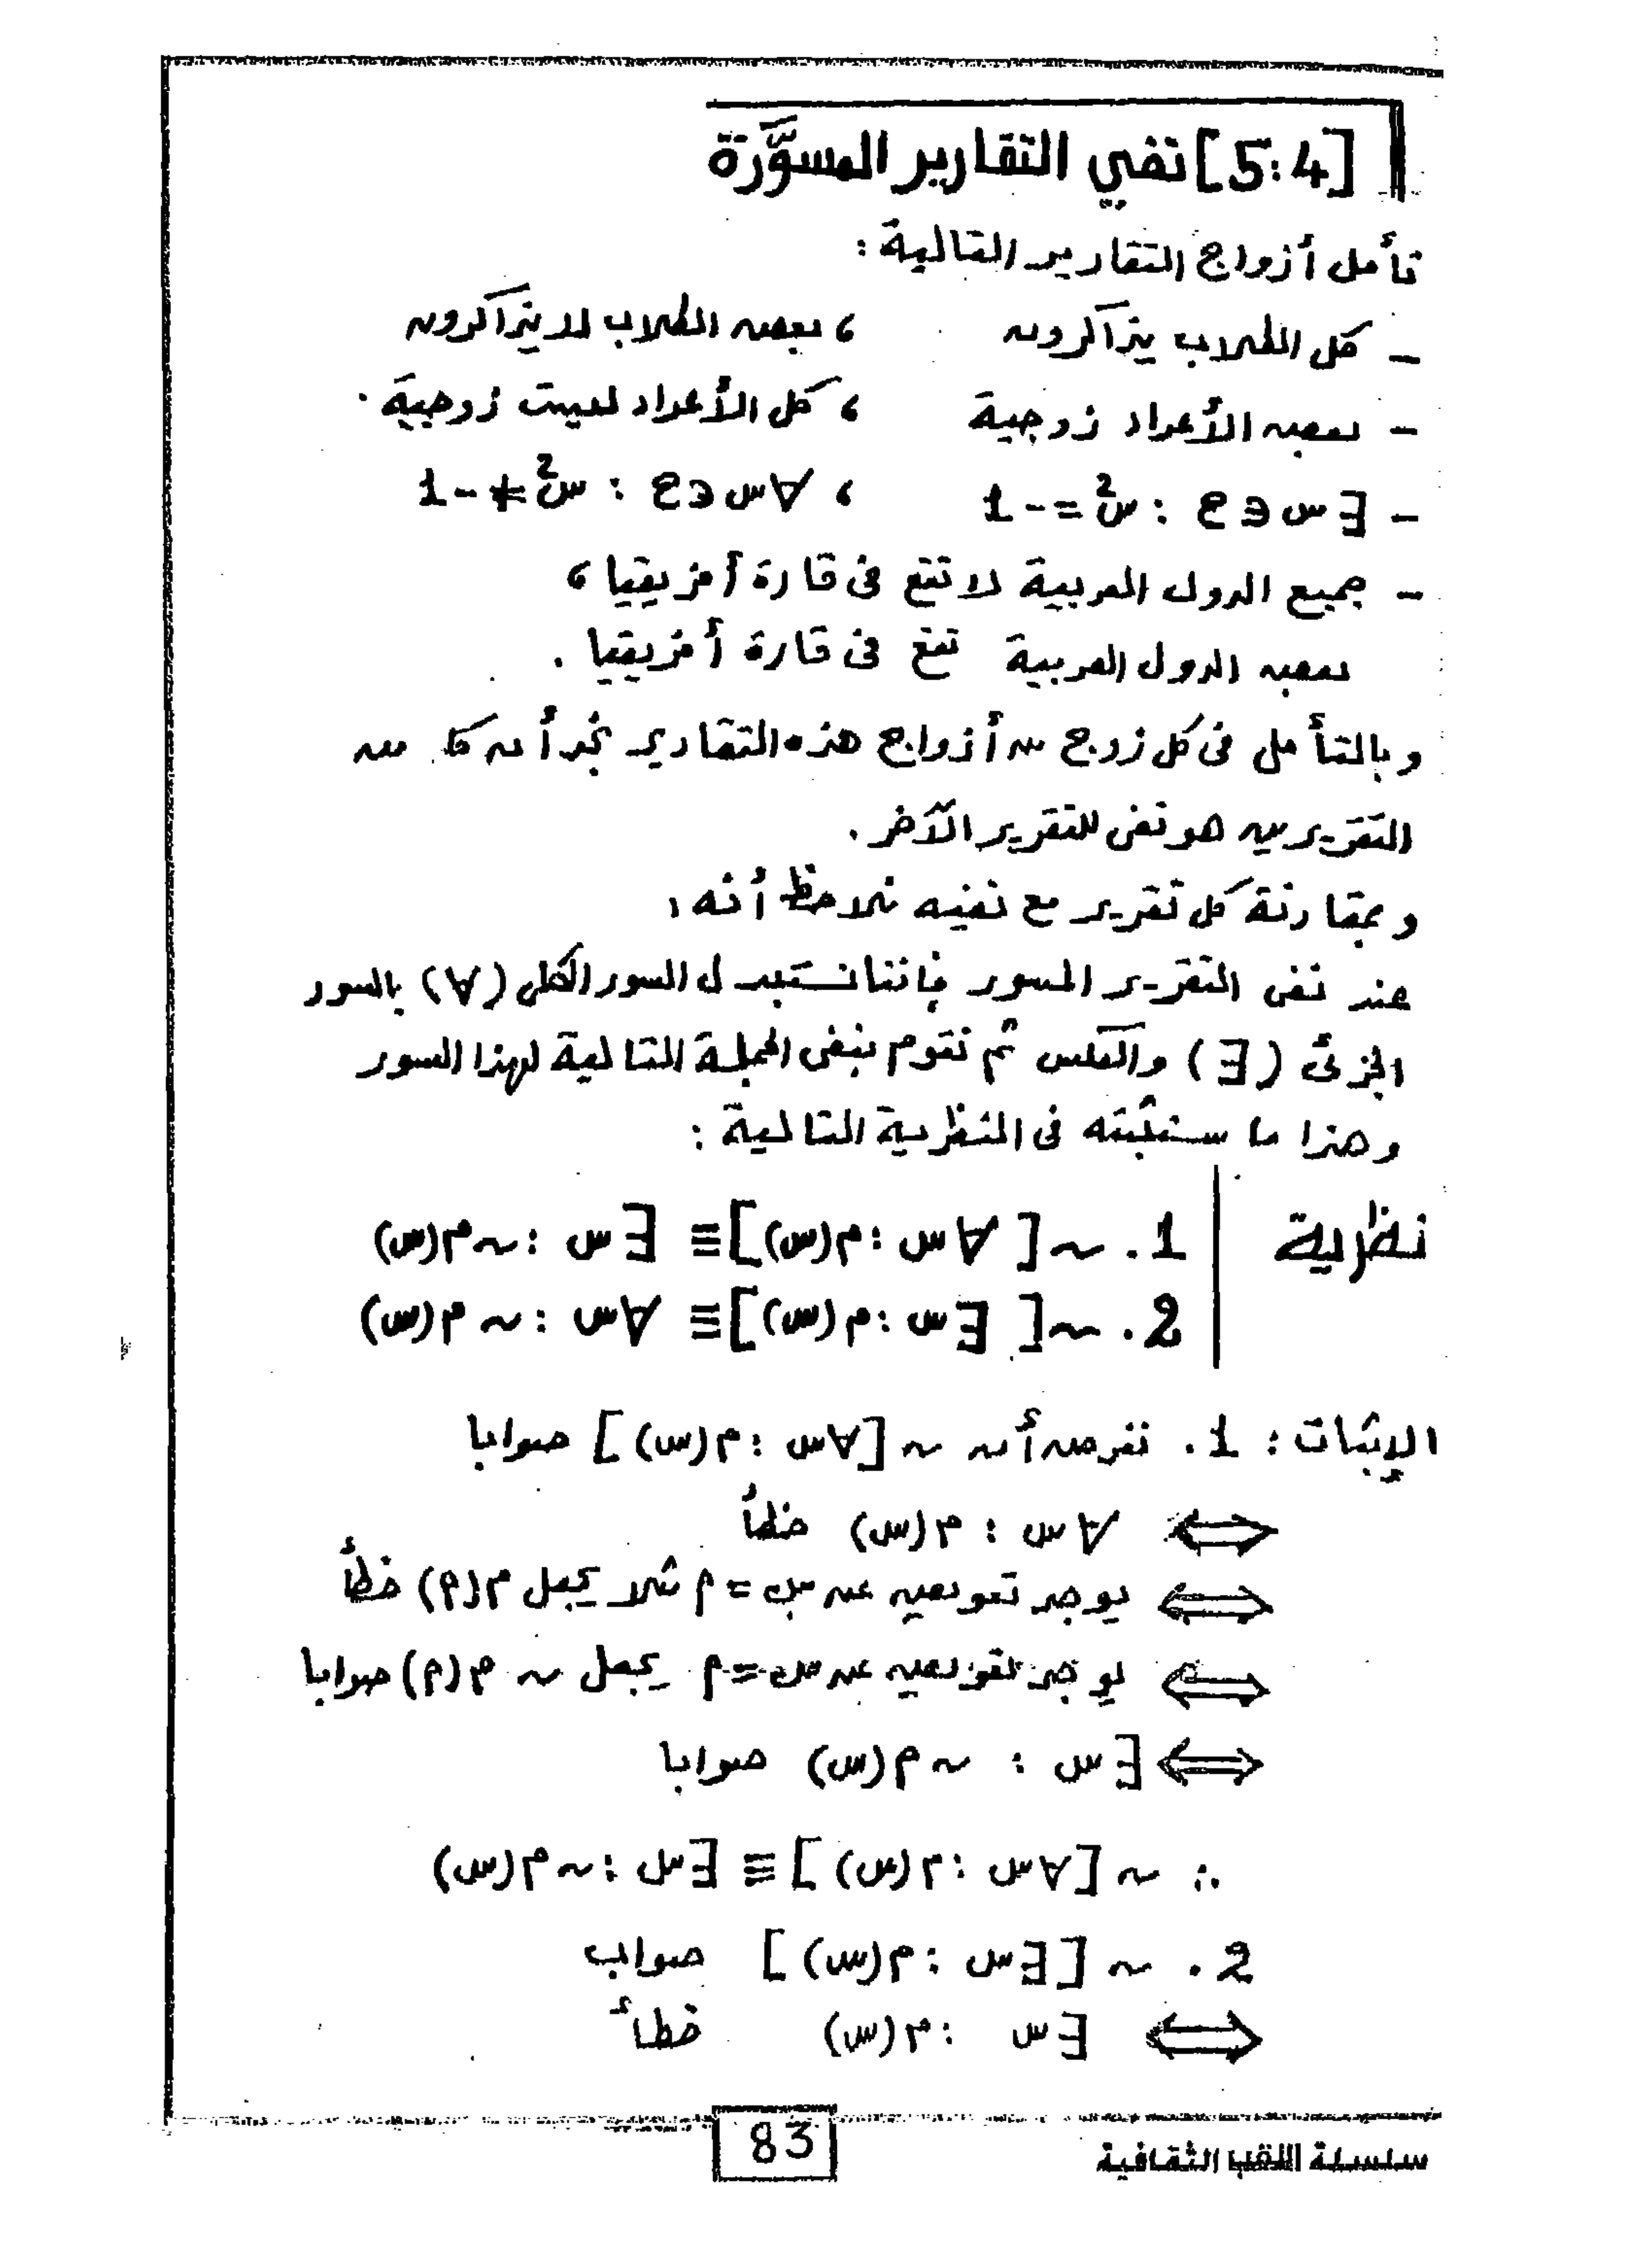 [5:4] نفي التقارير المسوَّرة
تأمل أزواج التقارير التالية :
- كل الطلاب يذاكرون ، بعض الطلاب لا يذاكرون
- بعض الأعداد زوجية ، كل الأعداد ليست زوجية .
- ∃ س ∈ ح : س² = -1 ، ∀ س ∈ ح : س² ≠ -1
- جميع الدول العربية لا تقع فى قارة أفريقيا ،
بعض الدول العربية تقع فى قارة أفريقيا .
وبالتأمل فى كل زوج من أزواج هذه التقارير نجد أن كل من
التقريرين هو نفى للتقرير الآخر .
وبمقارنة كل تقرير مع نفيه نلاحظ أنه :
عند نفى التقرير المسور فإننا نستبدل السور الكلى (∀) بالسور
الجزئى (∃) والعكس ثم نقوم بنفى الجملة التالية لهذا السور
وهذا ما سنثبته فى النظرية التالية :
نظرية 1. ~ [ ∀ س : م(س) ] ≡ ∃ س : ~ م(س)
2. ~ [ ∃ س : م(س) ] ≡ ∀ س : ~ م(س)
الإثبات : 1. نفرض أن ~ [ ∀ س : م(س) ] صوابا
⟺ ∀ س : م(س) خطأ
⟺ يوجد تعويض عن س = أ مثلا يجعل م(أ) خطأ
⟺ يوجد تعويض عن س = أ يجعل ~ م(أ) صوابا
⟺ ∃ س : ~ م(س) صوابا
∴ ~ [ ∀ س : م(س) ] ≡ ∃ س : ~ م(س)
2. ~ [ ∃ س : م(س) ] صواب
⟺ ∃ س : م(س) خطأ
83
سلسلة اللقب الثقافية